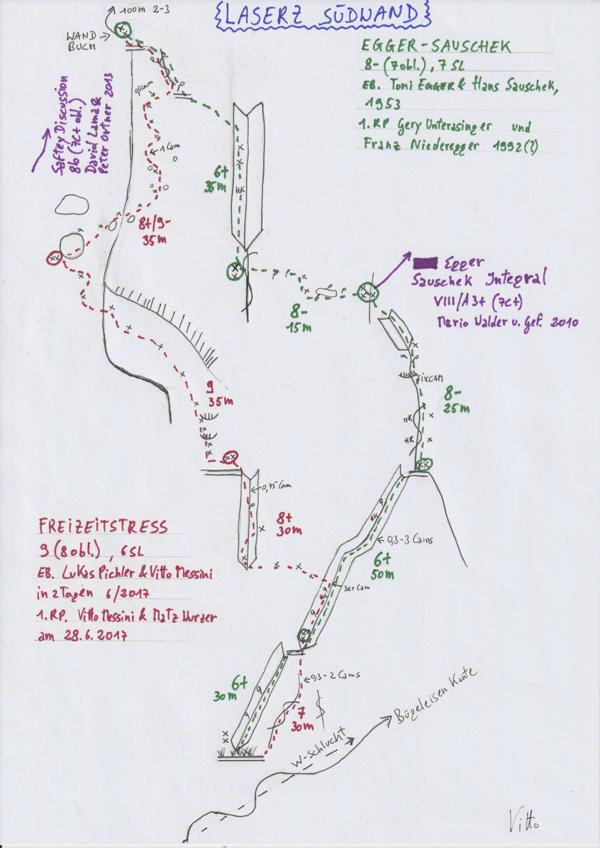 LASERZ SÜDWAND
100m 2-3
WAND
BUCH
EGGER-SAUSCHEK
8- (7obl.), 7SL
EB. Toni EGGER & Hans Sauschek,
1953
1. RP Gery Unterasinger und
Franz Niederegger 1992(?)
Saftey Discussion
8b (7c+ obl.)
David Lama &
Peter Ortner 2013
1 Cam
6+
35m
HK
8+/9-
35m
8-
15m
Egger
Sauschek Integral
VIII/A3+ (7c+)
Mario Walder u. Gef. 2010
FIXCAM
8-
25m
HK
HK
9
35m
0,75 Cam
8+
30m
0,3-3 Cams
6+
50m
3er Cam
FREIZEITSTRESS
9 (8obl.), 6SL
EB. Lukas Pichler & Vitto Messini
in 2Tagen 6/2017
1. RP. Vitto Messini & Matz Wurzer
am 28.6.2017
6+
30m
0,3-2 Cams
7
30m
W-Schlucht
Bügeleisen Kante
Vitto